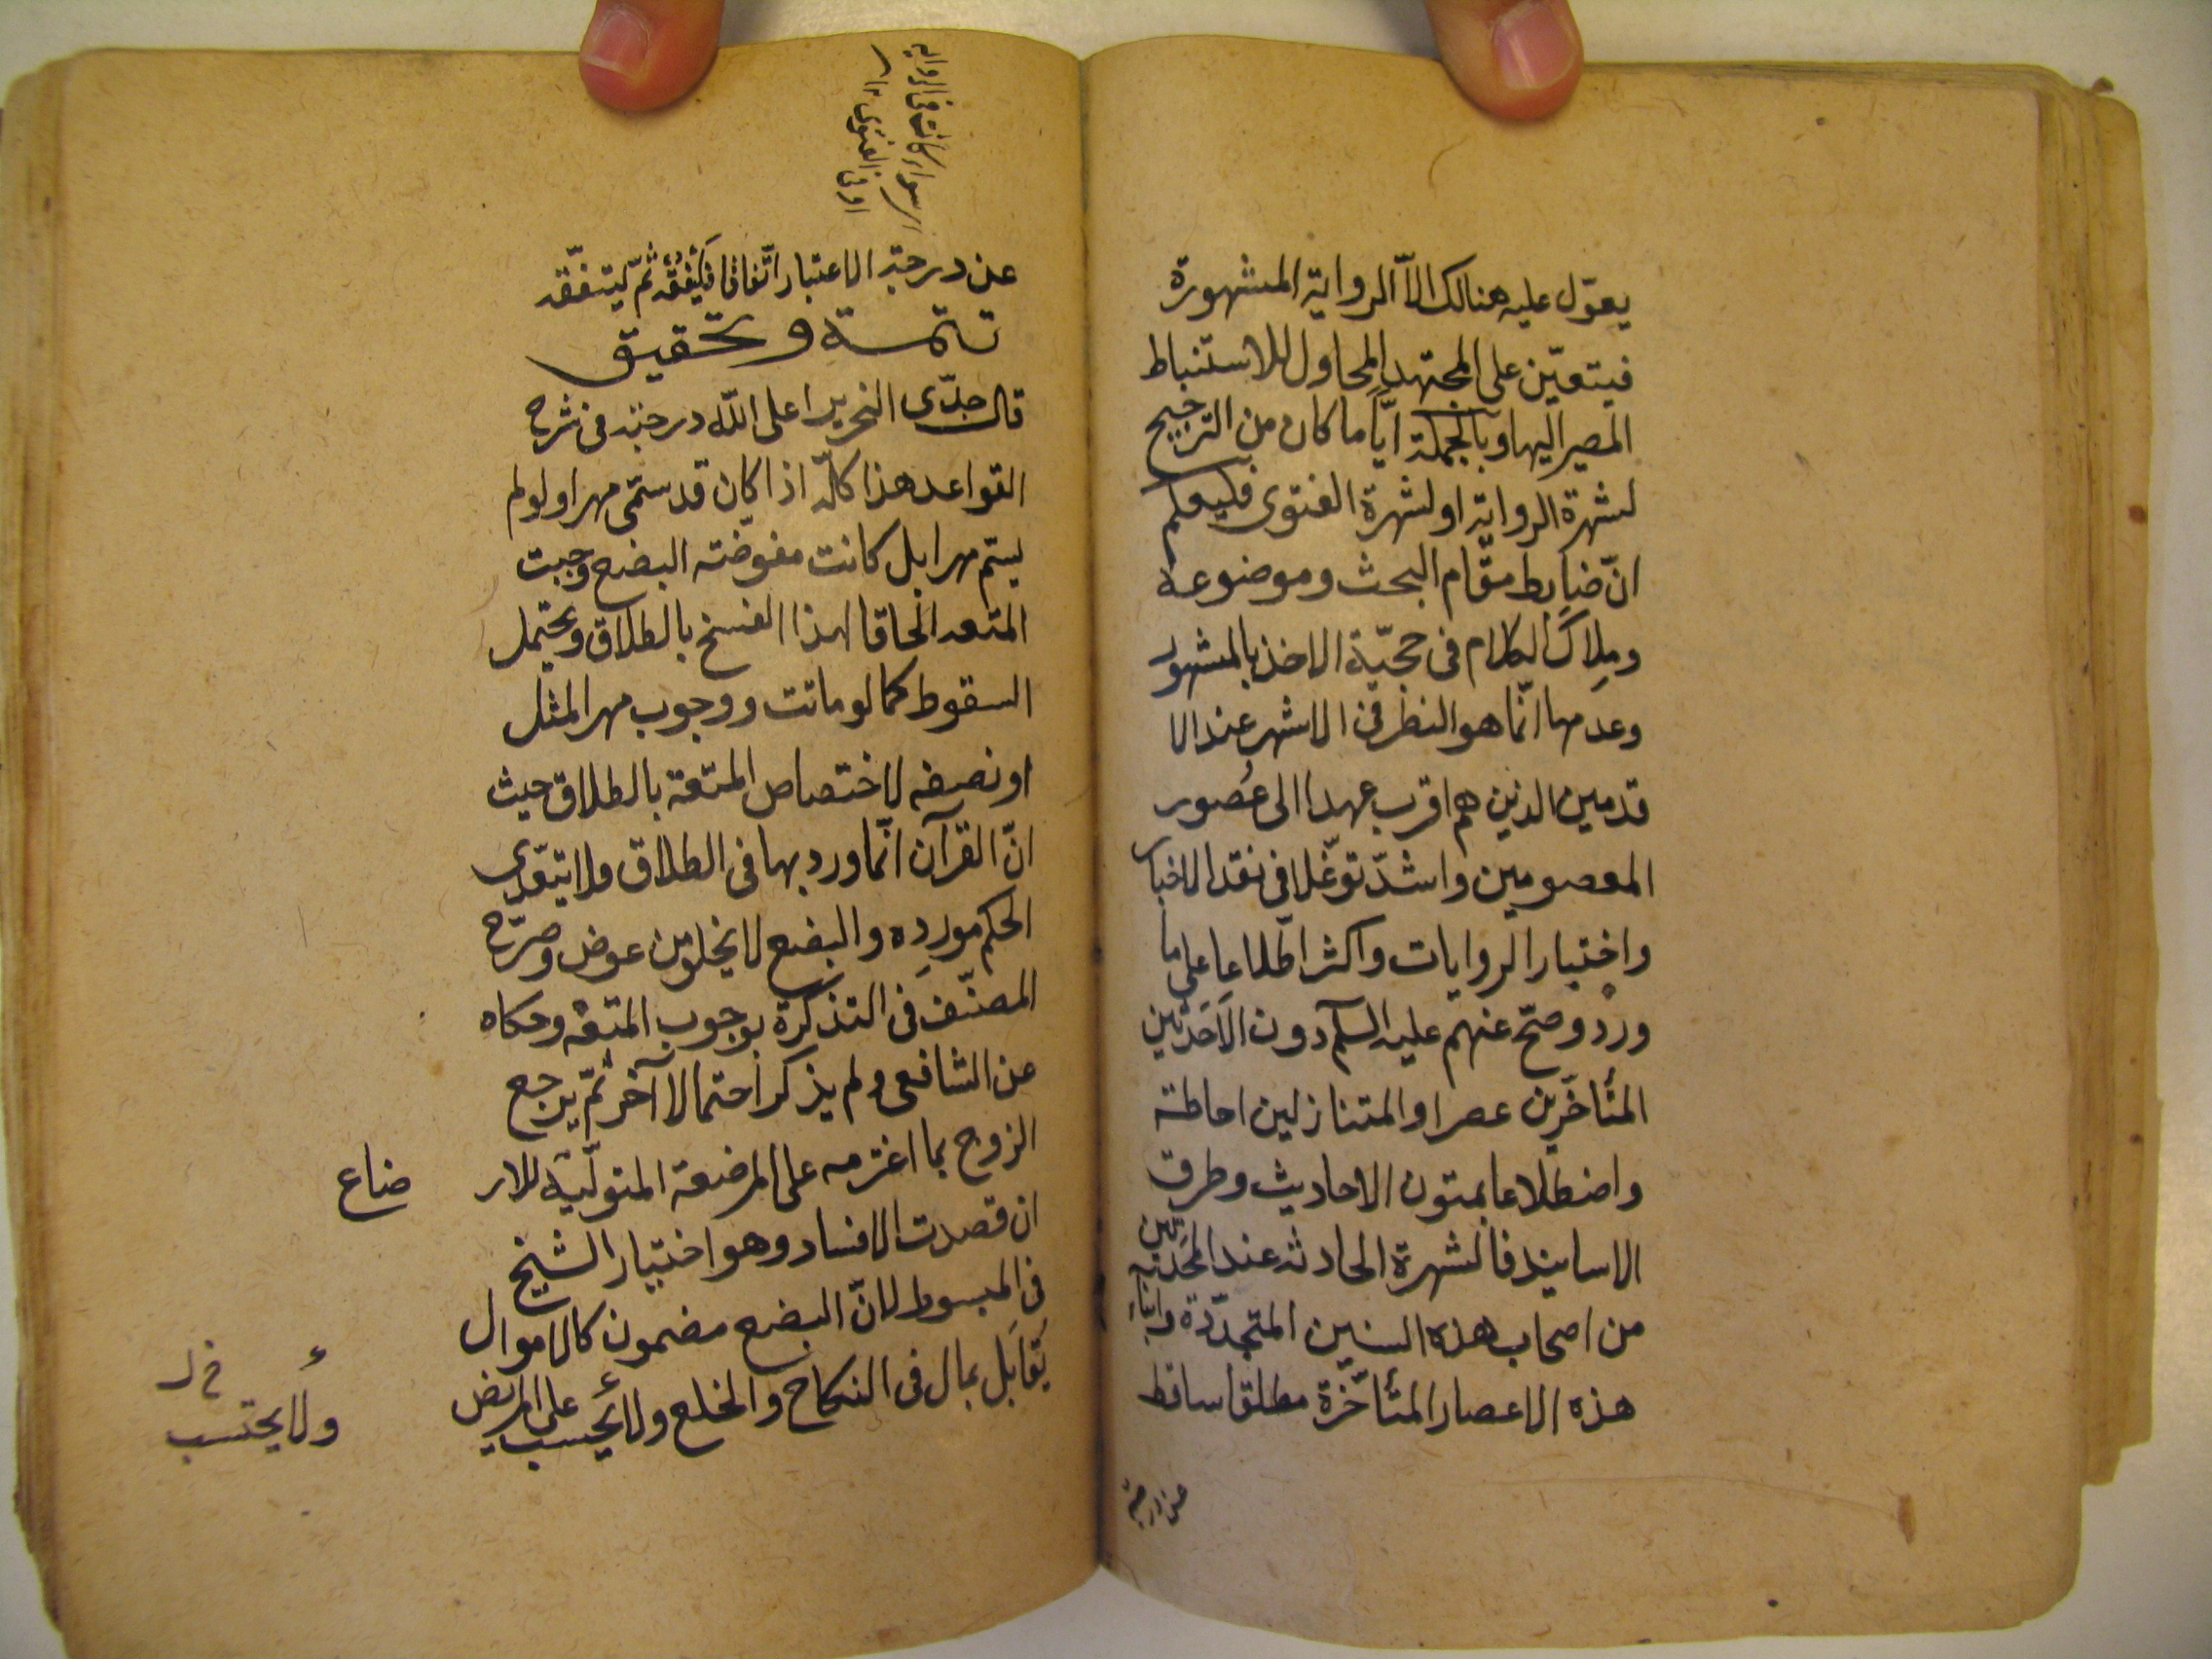 يعوّل عليه هنالك الّا الرواية المشهورة
فيتعيّن على المجتهد المحاول للاستنباط
المصير اليها وبالجملة ايّا ما كان من الترجيح
لشهرة الرواية او لشهرة الفتوى فليعلم
انّ ضابط مقام البحث وموضوعه
وملاك الكلام فى حجيّة الاخذ بالمشهور
وعدمها انّما هو النظر فى الاشهر عند الا
قدمين الذين هم اقرب عهدا الى عصور
المعصومين واشدّ توغّلا فى نقد الاخبار
واختبار الروايات واكثر اطّلاعا على ما
ورد وصحّ عنهم عليه السلم دون الاحدثين
المتأخّرين عصرا والمتنازلين احاطة
واضطلاعا بمتون الاحاديث وطرق
الاسانيد فالشهرة الحادثه عند المحدثين
من اصحاب هذه السنين المتجدّدة وابناء
هذه الاعصار المتأخّرة مطلقا ساقط
عن درجة
سواء كانت فى الرواية
او فى الفتوى
عن درجة الاعتبار اتّفاقا فليفقه ثمّ ليتفقّه
تتمة وتحقيق
قال جدّى النحرير اعلى اللّه درجته فى شرح
القواعد هذا كلّه اذا كان قد سمّى مهرا ولو لم
يسم مهرا بل كانت مفوضة البضع وجبت
المتعه الحاقا لهذا الفسخ بالطلاق ويحتمل
السقوط كما لو ماتت ووجوب مهر المثل
او نصفه لاختصاص المتعة بالطلاق حيث
انّ القرآن انّما ورد بها فى الطلاق ولا يتعدّى
الحكم مورده والبضع لا يخلو من عوض وصرّح
المصنّف فى التذكرة بوجوب المتعه وحكاه
عن الشافعى ولم يذكر احتمالا آخر ثمّ يرجع
الزوج بما اغترمه على المرضعة المتولّية للار
ضاع
ان قصدت الافساد وهو اختيار الشيخ
فى المبسوط لانّ البضع مضمون كالاموال
يقابل بمال فى النكاح والخلع ولا يحسب على المريض
ولا يحتسب
خ ل